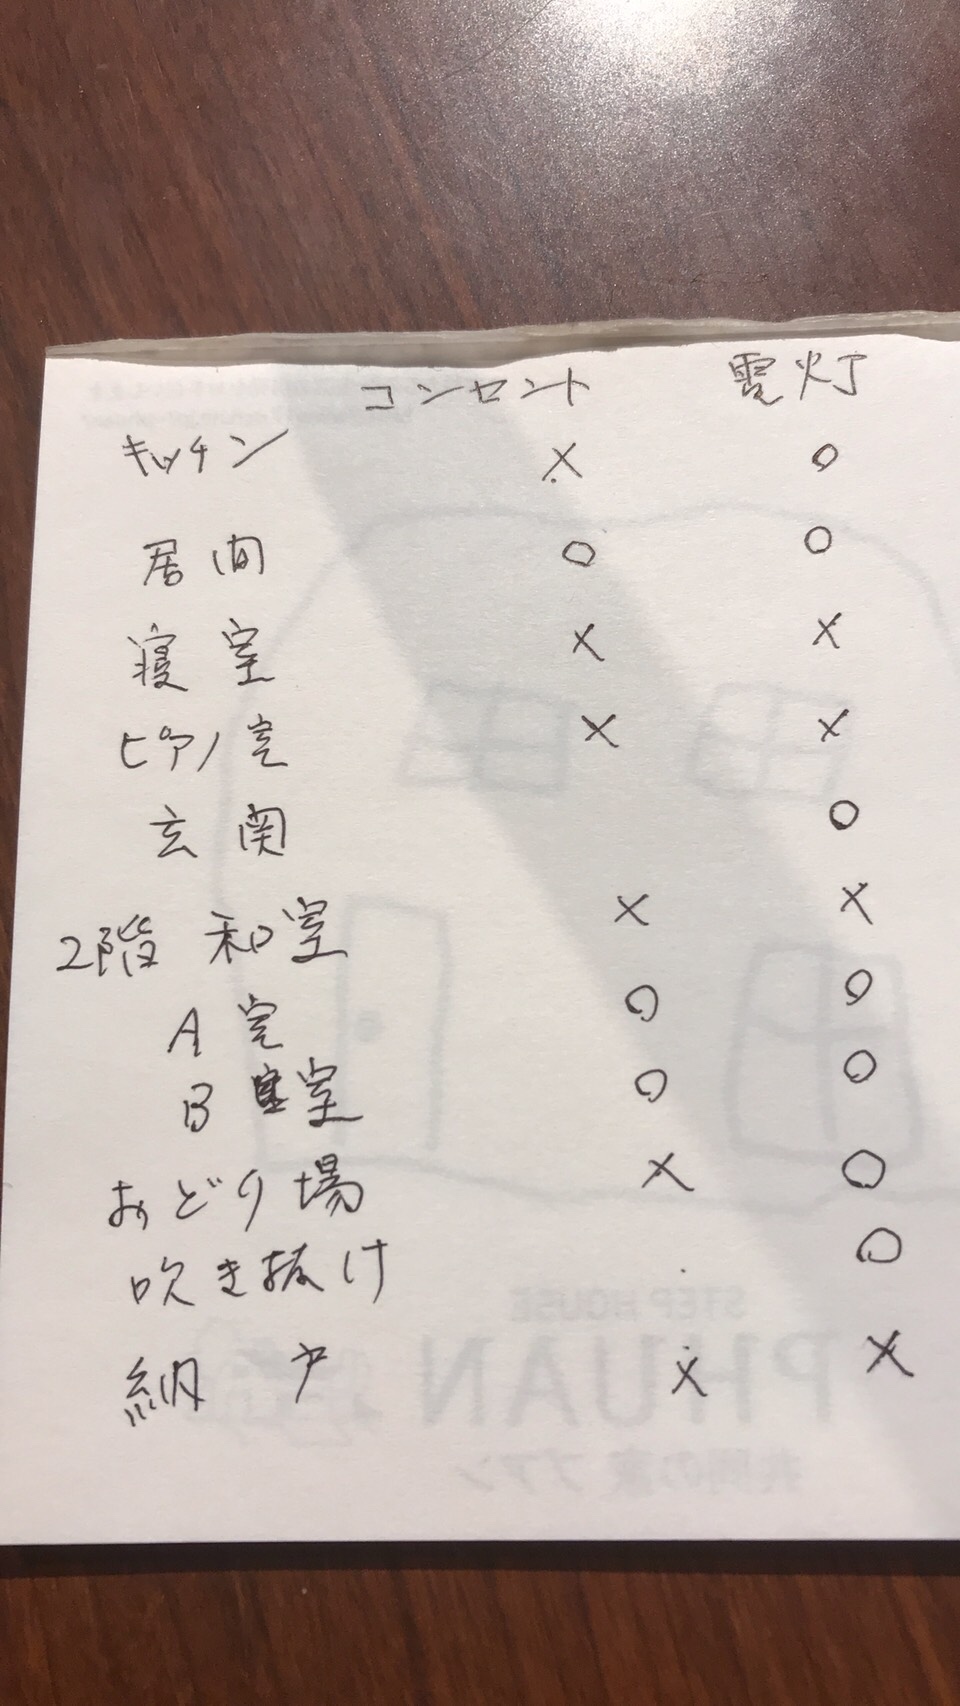 コンセント 電灯
キッチン × ○
居間 ○ ○
寝室 × ×
ピアノ室 × ×
玄関 ○
2階 和室 × ×
A室 ○ ○
B室 ○ ○
おどり場 × ○
吹き抜け ○
納戸 × ×
STEP HOUSE
PHUAN
共同の家 プアン